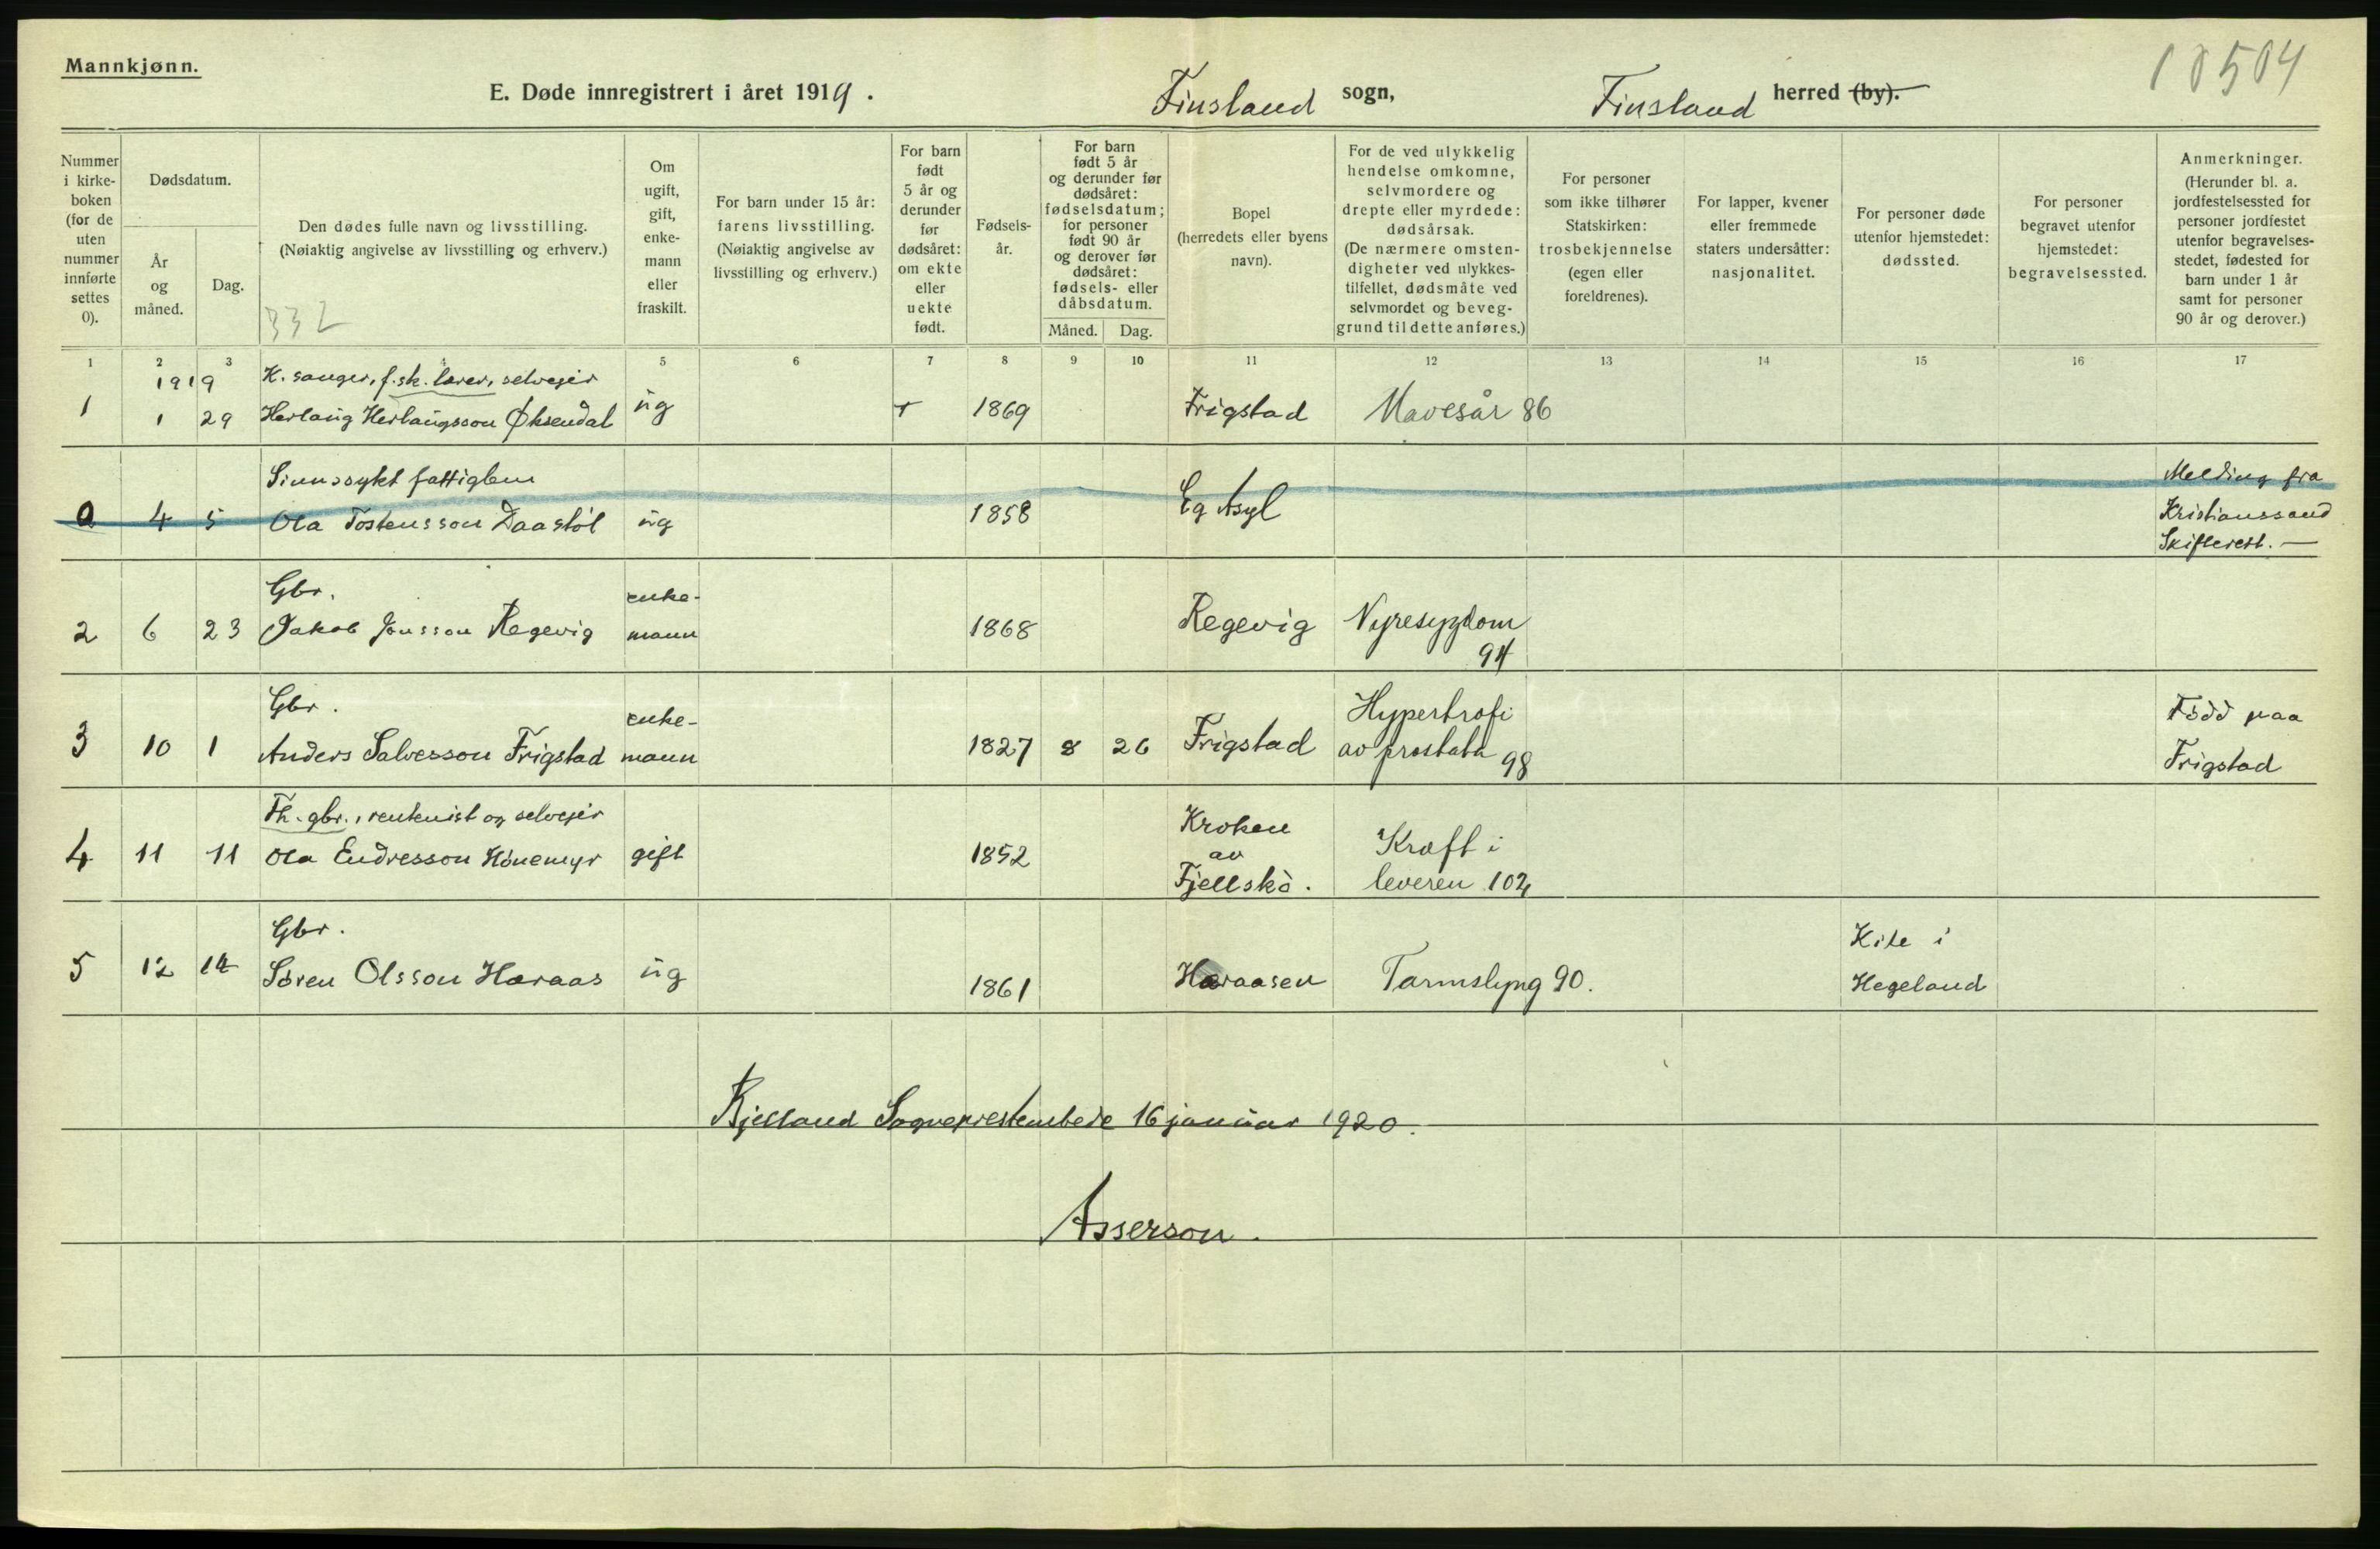 Mannkjønn.
10504
E. Døde innregistrert i året 1919.
Finsland sogn,
Finsland herred (by).
Nummer i kirke-boken (for de uten nummer innførte settes 0).
Dødsdatum.
År og måned.
Dag.
Den dødes fulle navn og livsstilling.
(Nøiaktig angivelse av livsstilling og erhverv.)
332
Om ugift, gift, enke-mann eller fraskilt.
For barn under 15 år: farens livsstilling.
(Nøiaktig angivelse av livsstilling og erhverv.)
For barn født 5 år og derunder før dødsåret: om ekte eller uekte født.
Fødsels-år.
For barn født 5 år og derunder før dødsåret: fødselsdatum; for personer født 90 år og derover før dødsåret: fødsels- eller dåbsdatum.
Måned.
Dag.
Bopel (herredets eller byens navn).
For de ved ulykkelig hendelse omkomne, selvmordere og drepte eller myrdede: dødsårsak.
(De nærmere omsten-digheter ved ulykkes-tilfellet, dødsmåte ved selvmordet og beveg-grund til dette anføres.)
For personer som ikke tilhører Statskirken: trosbekjennelse (egen eller foreldrenes).
For lapper, kvener eller fremmede staters undersåtter: nasjonalitet.
For personer døde utenfor hjemstedet: dødssted.
For personer begravet utenfor hjemstedet: begravelsessted.
Anmerkninger.
(Herunder bl. a. jordfestelsessted for personer jordfestet utenfor begravelses-stedet, fødested for barn under 1 år samt for personer 90 år og derover.)
1 2 3 4 5 6 7 8 9 10 11 12 13 14 15 16 17
1919 K. sanger, f. sk. lærer, selveier
1 1 29 Herlaug Herlaugsson Øksendal ug + 1869 Frigstad Mavesår 86
Sinnssykt fattiglem Melding fra
0 4 5 Ola Tostensson Daastöl ug 1858 Eg Asyl Kristianssand
Skifterett. —
Gbr. enke-
2 6 23 Jakob Jonsson Regevig mann 1868 Regevig Nyresygdom
94
Gbr. enke- Hypertrofi Född paa
3 10 1 Anders Salvesson Frigstad mann 1827 8 26 Frigstad av prostata 98 Frigstad
Fh. gbr., rentenist og selveier Kroken
4 11 11 Ola Endresson Hönemyr gift 1852 av Kræft i
Fjellskö. leveren 102
Gbr. Kile i
5 12 12 Sören Olsson Haraas ug 1861 Haraasen Tarmslyng 90. Hegeland
Bjelland Sogneprestembede 16 januar 1920.
Asserson.